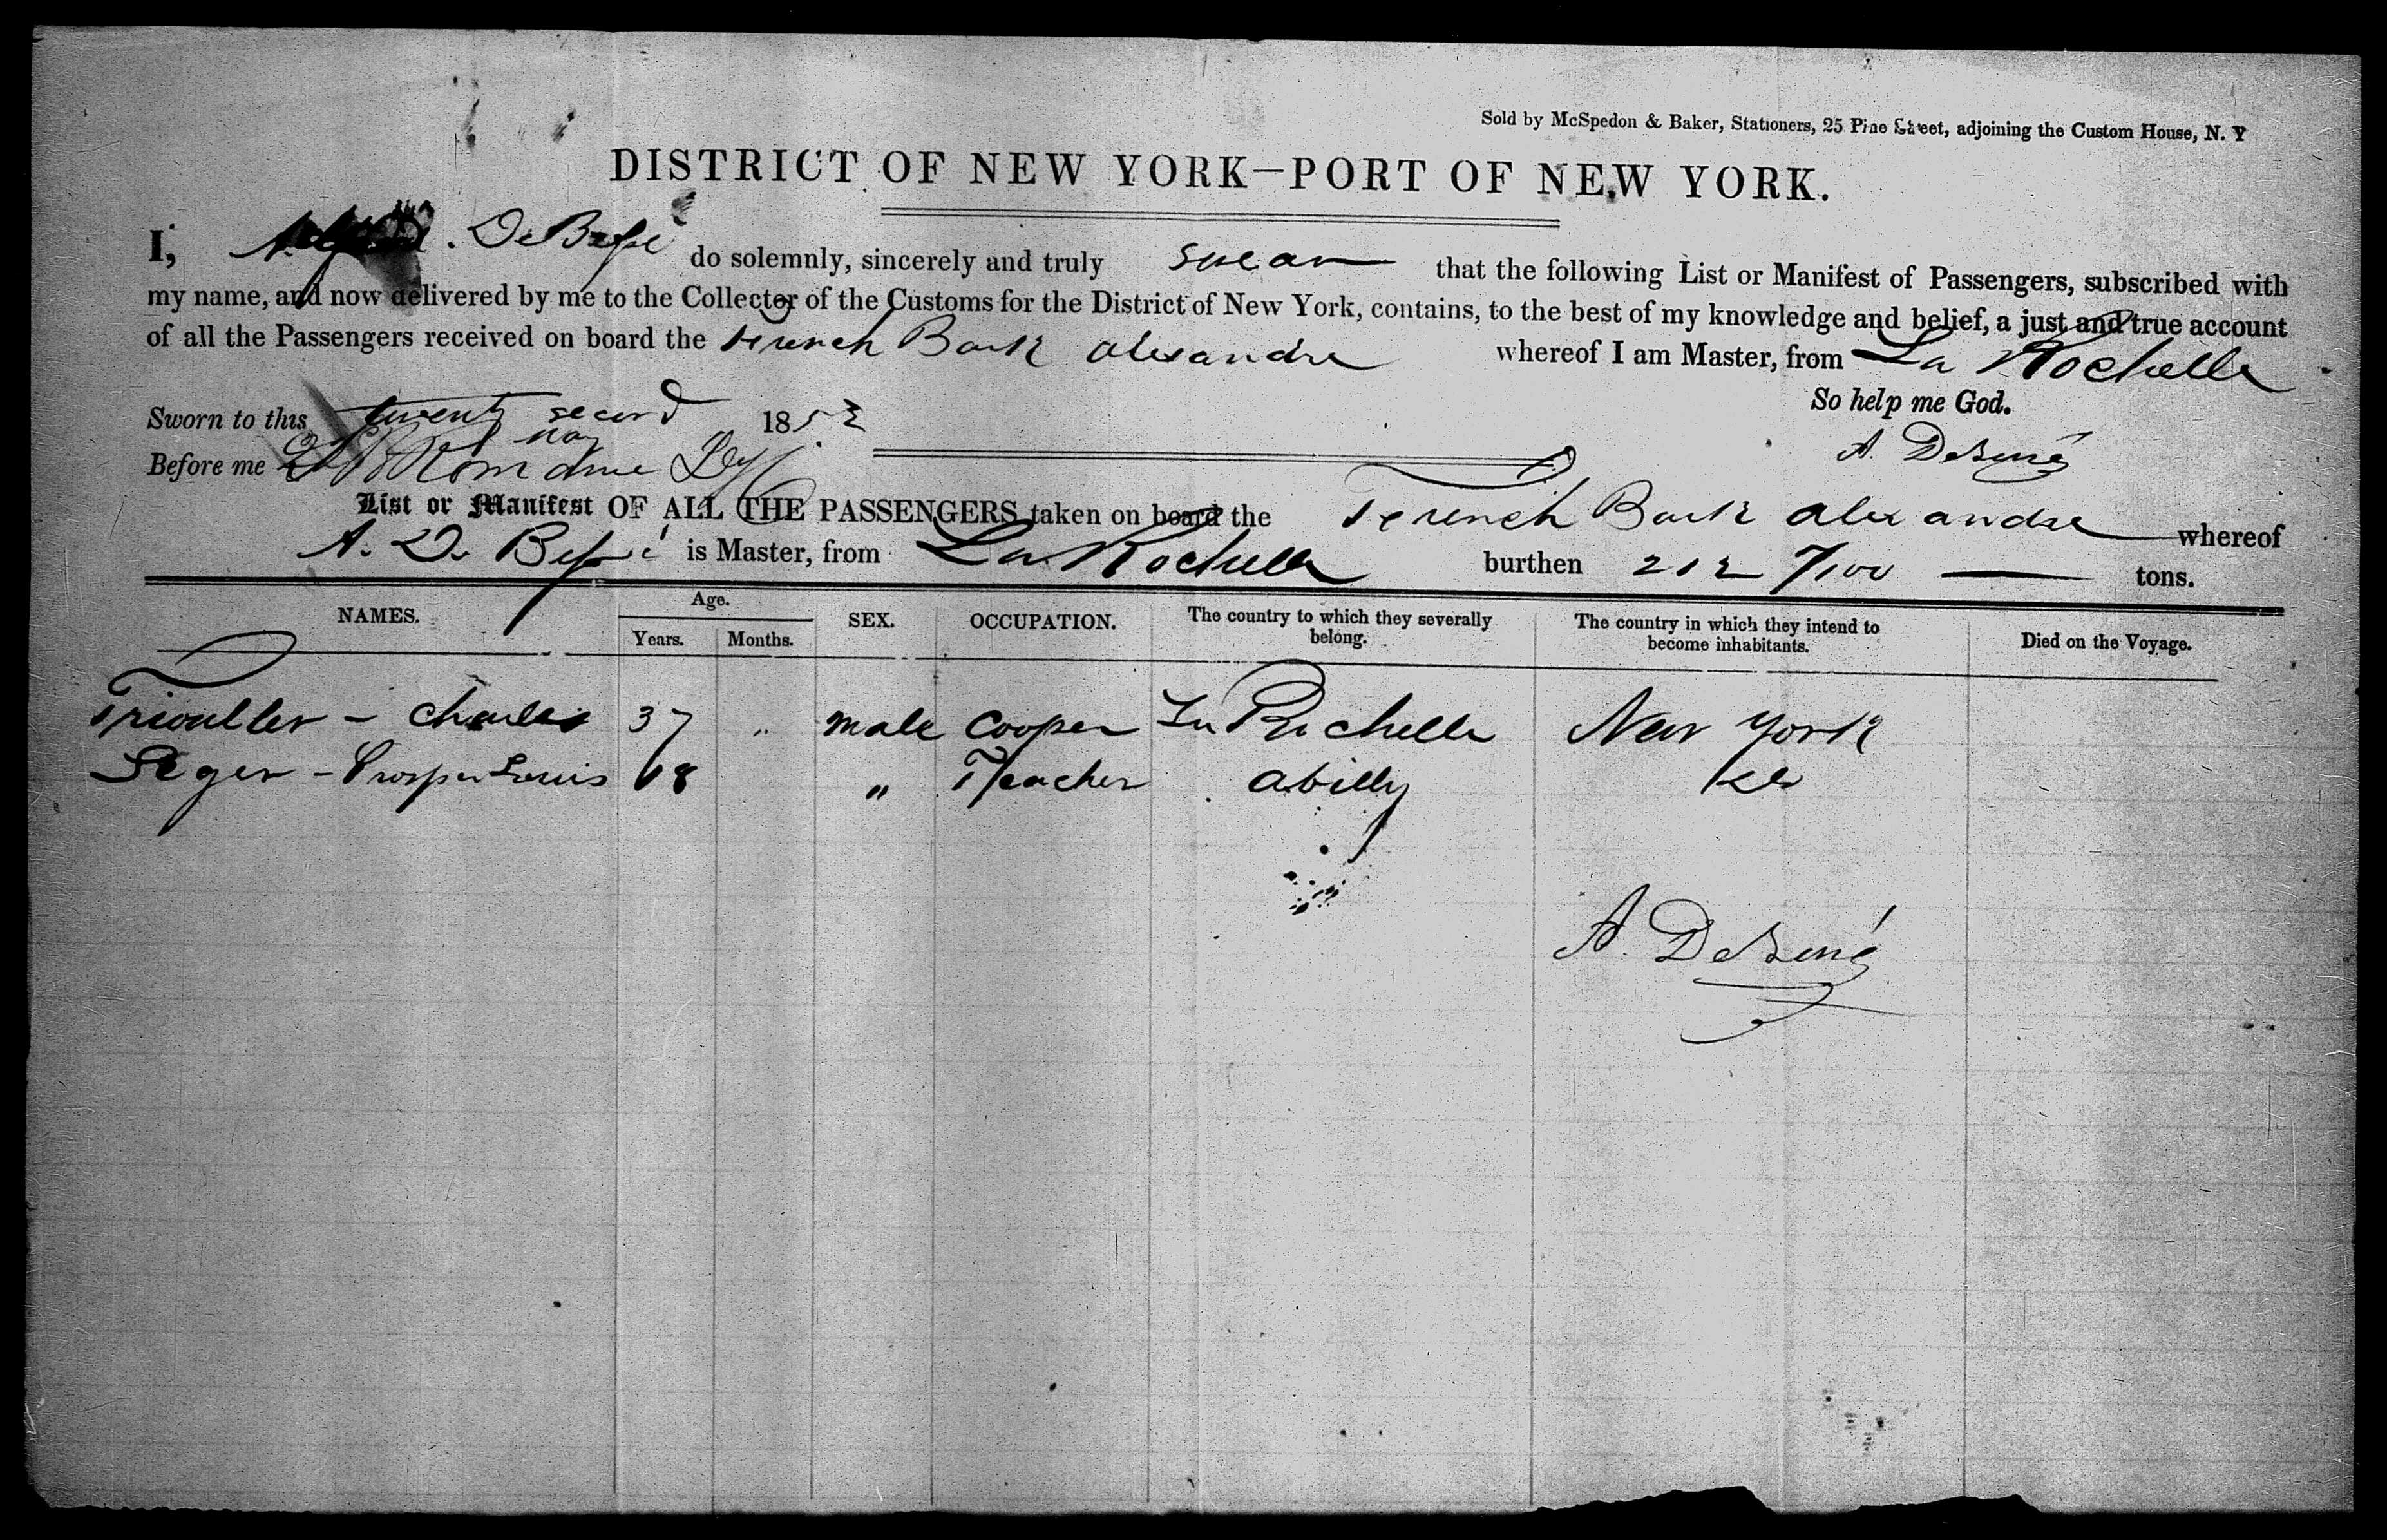 Sold by McSpedon & Baker, Stationers, 25 Pine Street, adjoining the Custom House, N. Y
DISTRICT OF NEW YORK—PORT OF NEW YORK.
I, A. De do solemnly, sincerely and truly swear that the following List or Manifest of Passengers, subscribed with
my name, and now delivered by me to the Collector of the Customs for the District of New York, contains, to the best of my knowledge and belief, a just and true account
of all the Passengers received on board the French Bark alexandre whereof I am Master, from La Rochelle
So help me God.
Sworn to this twenty second 185
may
Before me
A.
List or Manifest OF ALL THE PASSENGERS taken on board the French Bark alexandre whereof
A. De is Master, from La Rochelle burthen 212 7/100 tons.
NAMES. Age. SEX. OCCUPATION. The country to which they severally belong. The country in which they intend to become inhabitants. Died on the Voyage.
Years. Months.
- Charles 37 " male Cooper La Rochelle New York
Seger - Prosper Louis 18 " Teacher abilly
A.